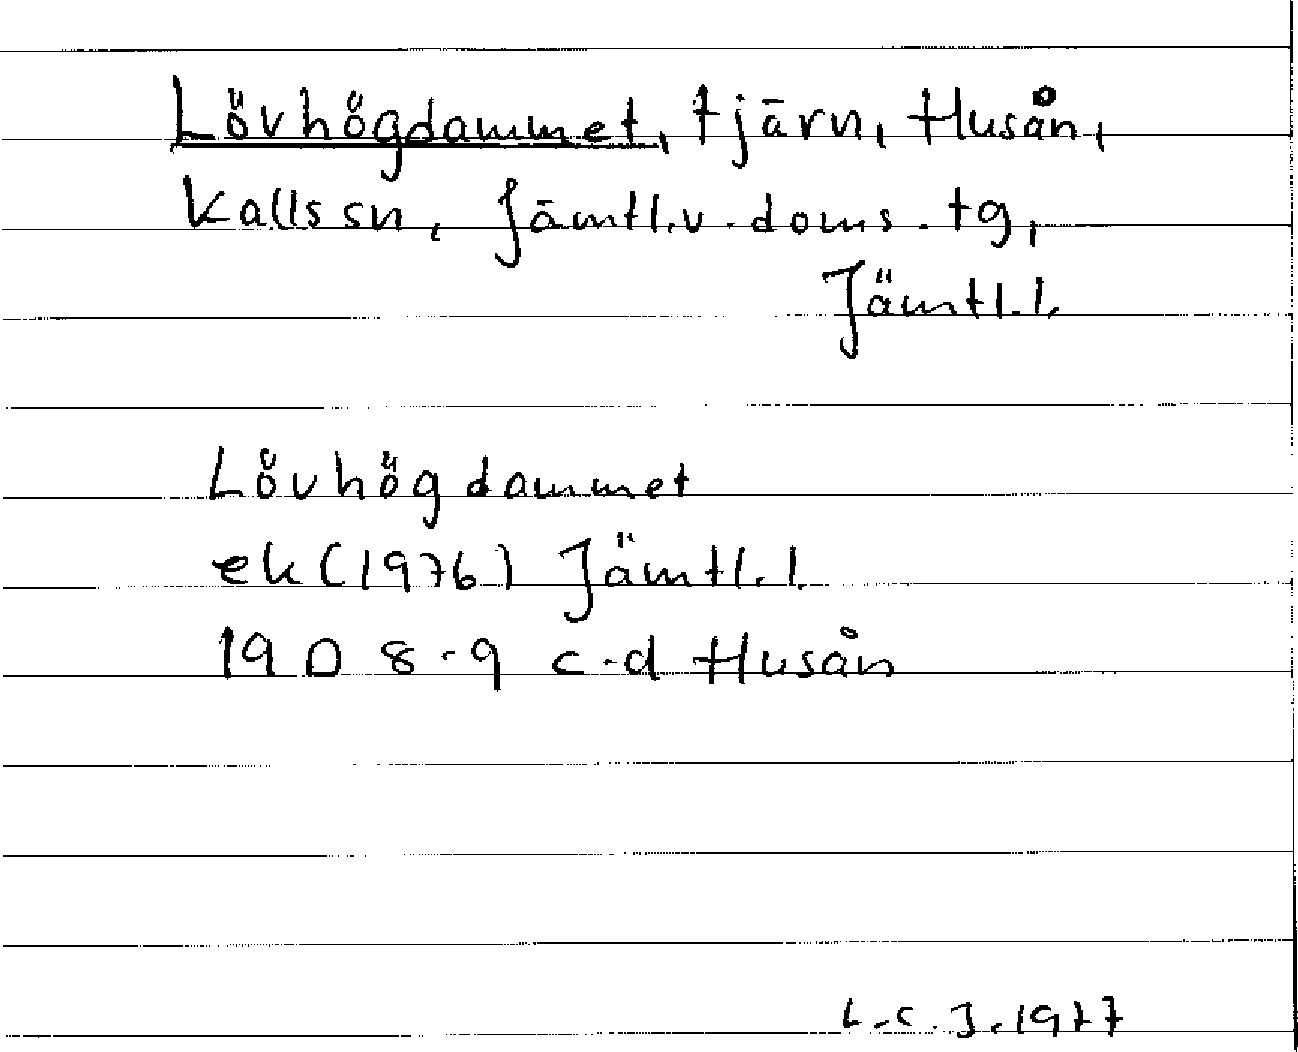 Lövhögdammet, tjärn, Husån,
Kalls sn, Jämtl. v. doms. tg,
Jämtl. l.
Lövhögdammet
ek (1976) Jämtl. l.
19 D 8-9 c-d Husån
L.C.J. 1977